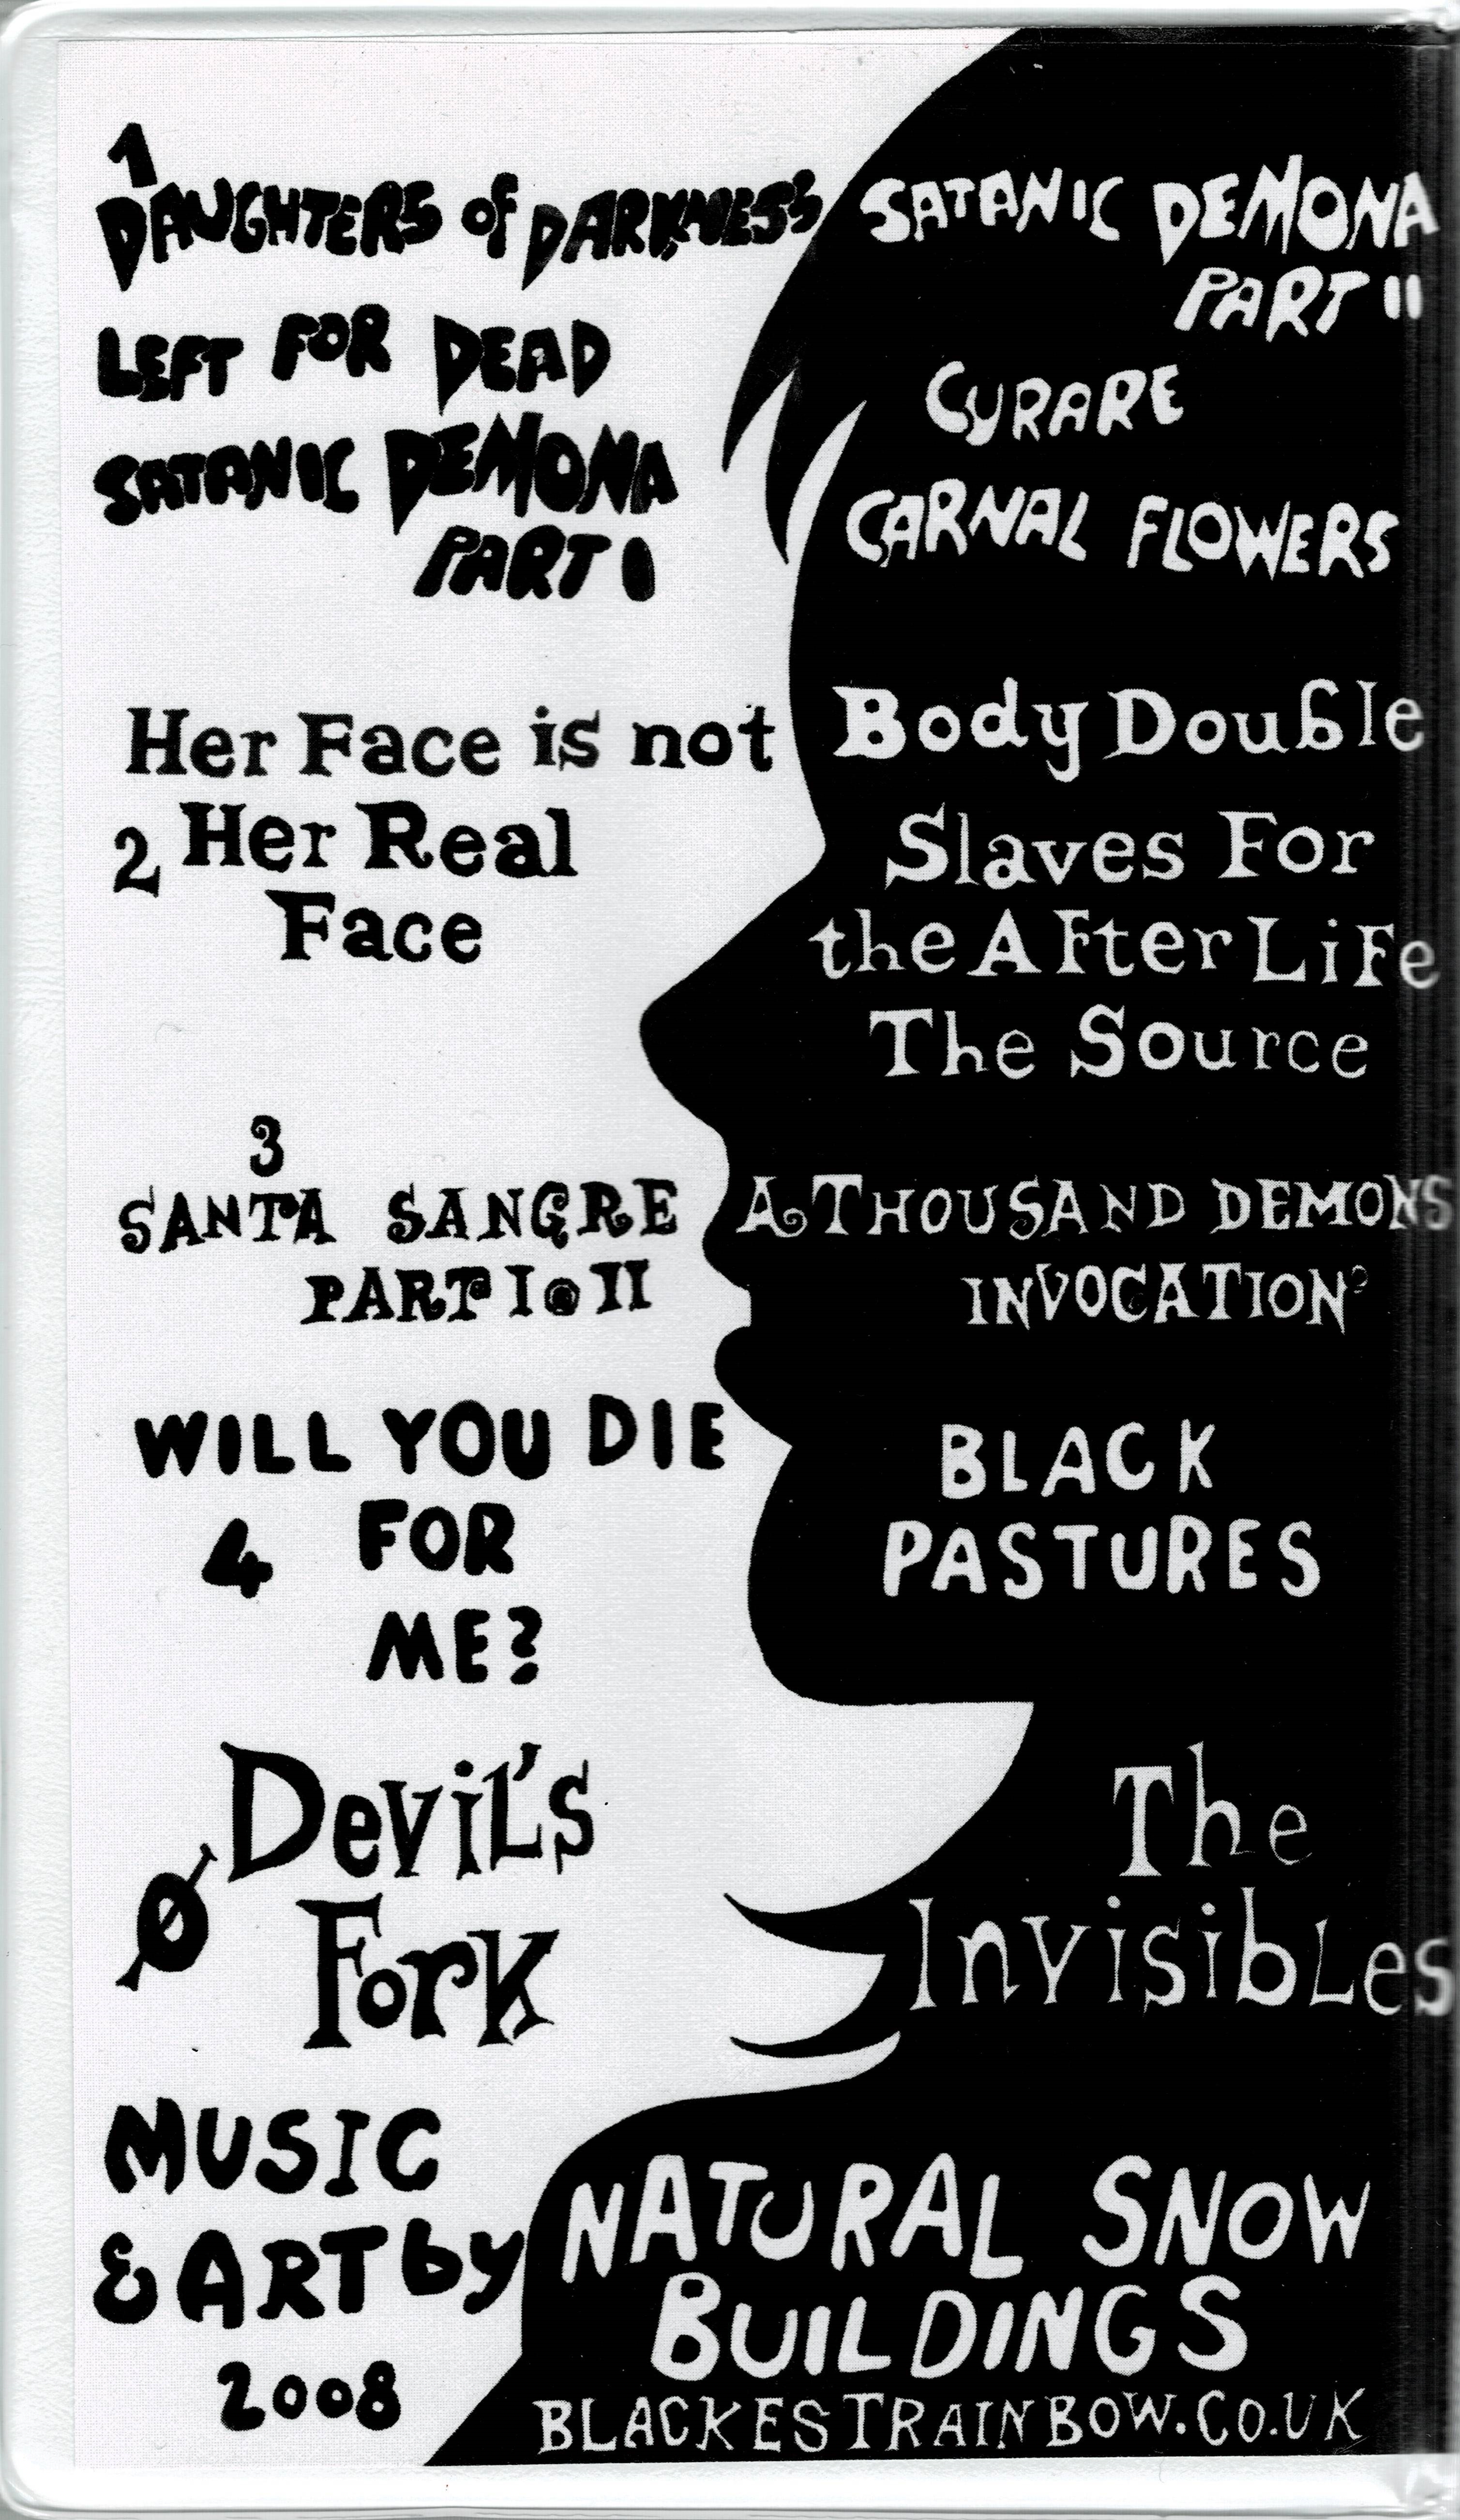 1
DAUGHTERS of DARKNESS
LEFT FOR DEAD
SATANIC DEMONA
PART I
SATANIC DEMONA
PART II
CURARE
CARNAL FLOWERS
Her Face is not
2 Her Real
Face
Body Double
Slaves For
the AFter LiFe
The Source
3
SANTA SANGRE
PART I @ II
A THOUSAND DEMONS
INVOCATION
WILL YOU DIE
4 FOR
ME?
BLACK
PASTURES
Devil's
Ø Fork
The
Invisibles
MUSIC
& ART by
2008
NATURAL SNOW
BUILDINGS
BLACKESTRAINBOW.CO.UK